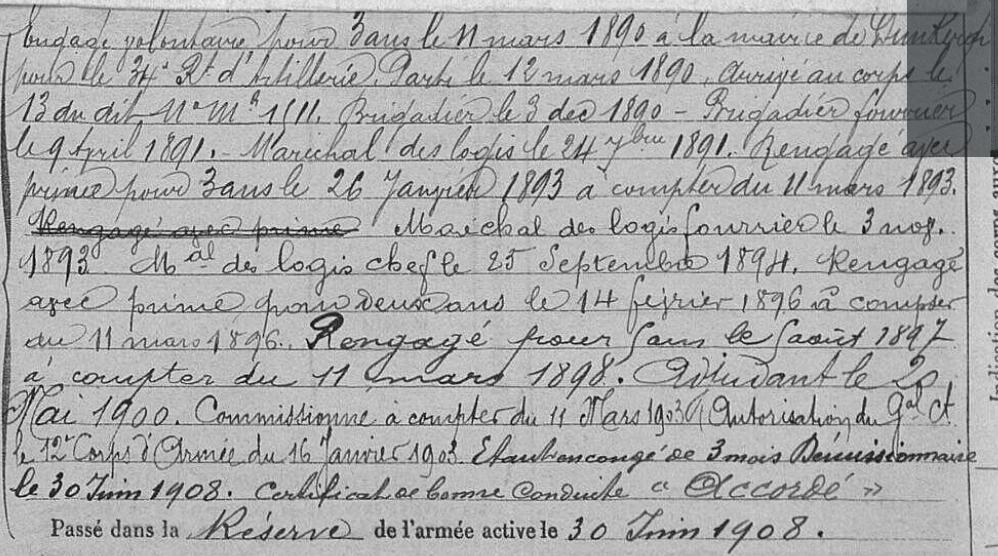 Engagé volontaire pour 3 ans le 11 mars 1890 à la mairie de Dunkerque
pour le 34e Rt d'Artillerie. Parti le 12 mars 1890. Arrivé au corps le
13 du dit No Mle 1511. Brigadier le 3 dec 1890 - Brigadier fourrier
le 9 Avril 1891. Maréchal des logis le 24 7bre 1891. Rengagé avec
prime pour 3 ans le 26 Janvier 1893 à compter du 11 mars 1893.
Rengagé avec prime Maréchal des logis fourrier le 3 nov.
1893 Mal des logis chef le 25 Septembre 1894. Rengagé
avec prime pour deux ans le 14 février 1896 à compter
du 11 mars 1896. Rengagé pour 5 ans le 5 août 1897
à compter du 11 mars 1898. Adjudant le 20
Mai 1900. Commissionné à compter du 11 Mars 1903 (Autorisation du Gal Ct
le 12e Corps d'Armée du 16 Janvier 1903. Etant en congé de 3 mois Démissionnaire
le 30 Juin 1908. Certificat de bonne conduite « Accordé »
Passé dans la Réserve de l'armée active le 30 Juin 1908.